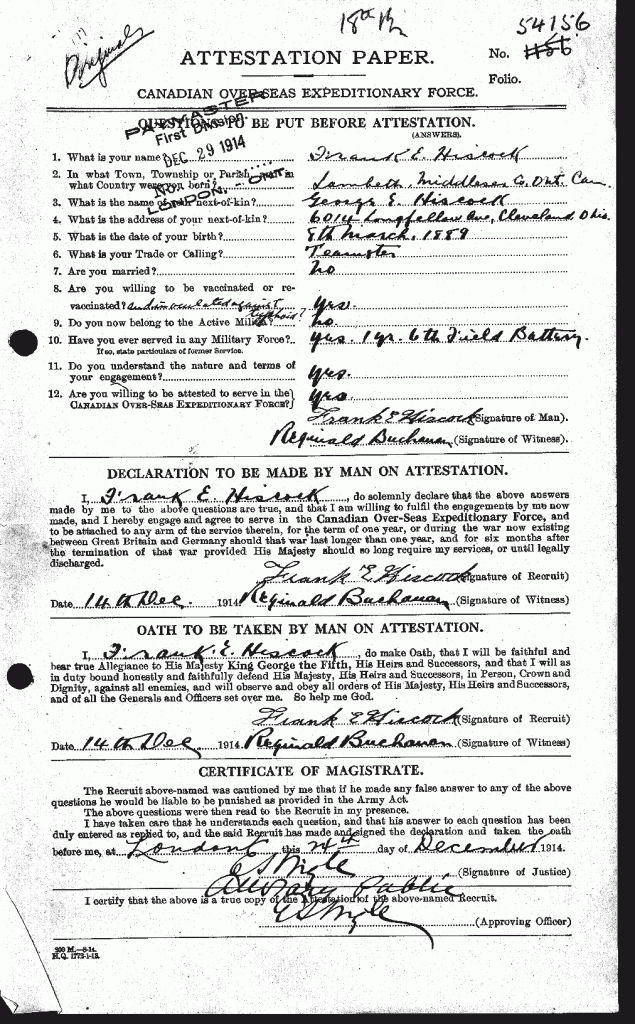 Original
18th
54156
ATTESTATION PAPER.
No.
Folio.
CANADIAN OVER-SEAS EXPEDITIONARY FORCE.
PAYMASTER
First Division
DEC 29 1914
LONDON, ONT.
QUESTIONS TO BE PUT BEFORE ATTESTATION.
(ANSWERS).
1. What is your name? Frank E. Hiscock
2. In what Town, Township or Parish, and in
what Country were you born? Lambeth, Middlesex Co. Ont. Can.
3. What is the name of your next-of-kin? George E. Hiscock
4. What is the address of your next-of-kin? 6014 Longfellow Ave, Cleveland Ohio.
5. What is the date of your birth? 8th March, 1889
6. What is your Trade or Calling? Teamster
7. Are you married? no
8. Are you willing to be vaccinated or re-
vaccinated? and inoculated against typhoid? yes.
9. Do you now belong to the Active Militia? no.
10. Have you ever served in any Military Force? yes. 1 yr. 6th Field Battery.
If so, state particulars of former Service.
11. Do you understand the nature and terms of
your engagement? yes.
12. Are you willing to be attested to serve in the
CANADIAN OVER-SEAS EXPEDITIONARY FORCE? yes
Frank E Hiscock (Signature of Man).
Reginald Buchanan (Signature of Witness).
DECLARATION TO BE MADE BY MAN ON ATTESTATION.
I, Frank E. Hiscock, do solemnly declare that the above answers
made by me to the above questions are true, and that I am willing to fulfil the engagements by me now
made, and I hereby engage and agree to serve in the Canadian Over-Seas Expeditionary Force, and
to be attached to any arm of the service therein, for the term of one year, or during the war now existing
between Great Britain and Germany should that war last longer than one year, and for six months after
the termination of that war provided His Majesty should so long require my services, or until legally
discharged.
Frank E Hiscock (Signature of Recruit)
Date 14th Dec. 1914 Reginald Buchanan (Signature of Witness)
OATH TO BE TAKEN BY MAN ON ATTESTATION.
I, Frank E. Hiscock, do make Oath, that I will be faithful and
bear true Allegiance to His Majesty King George the Fifth, His Heirs and Successors, and that I will as
in duty bound honestly and faithfully defend His Majesty, His Heirs and Successors, in Person, Crown and
Dignity, against all enemies, and will observe and obey all orders of His Majesty, His Heirs and Successors,
and of all the Generals and Officers set over me. So help me God.
Frank E Hiscock (Signature of Recruit)
Date 14th Dec, 1914. Reginald Buchanan (Signature of Witness)
CERTIFICATE OF MAGISTRATE.
The Recruit above-named was cautioned by me that if he made any false answer to any of the above
questions he would be liable to be punished as provided in the Army Act.
The above questions were then read to the Recruit in my presence.
I have taken care that he understands each question, and that his answer to each question has been
duly entered as replied to, and the said Recruit has made and signed the declaration and taken the oath
before me, at London this 24th day of December 1914.
(Signature of Justice)
A Notary Public
I certify that the above is a true copy of the Attestation of the above-named Recruit.
(Approving Officer)
200 M.—8-14.
H.Q. 1772-1-13.